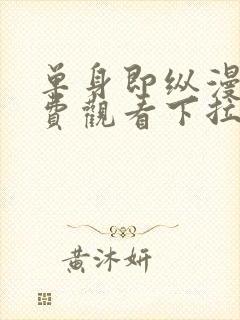 单身即纵漫
费觀看下拉
黄沐妍